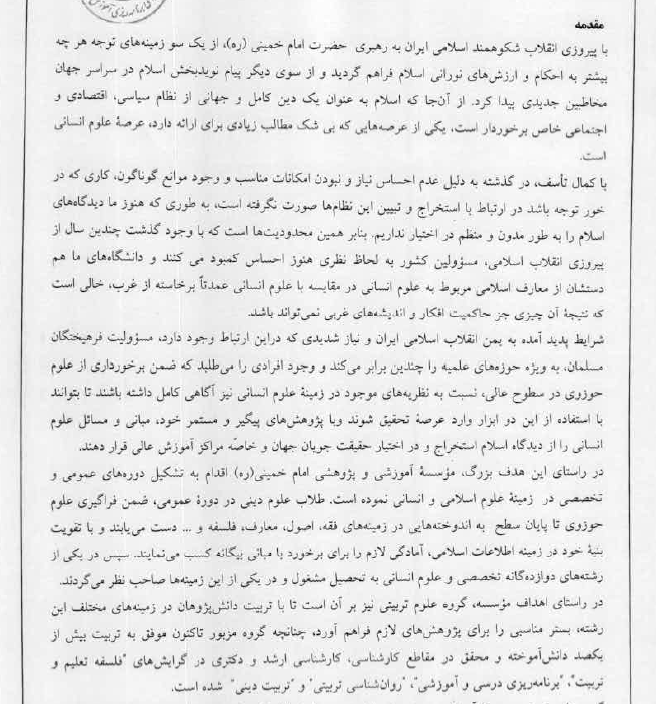 مقدمه
با پیروزی انقلاب شکوهمند اسلامی ایران به رهبری حضرت امام خمینی (ره)، از یک سو زمینه‌های توجه هر چه
بیشتر به احکام و ارزش‌های نورانی اسلام فراهم گردید و از سوی دیگر پیام نویدبخش اسلام در سراسر جهان
مخاطبین جدیدی پیدا کرد. از آن‌جا که اسلام به عنوان یک دین کامل و جهانی از نظام سیاسی، اقتصادی و
اجتماعی خاص برخوردار است، یکی از عرصه‌هایی که بی شک مطالب زیادی برای ارائه دارد، عرصهٔ علوم انسانی
است.
با کمال تأسف، در گذشته به دلیل عدم احساس نیاز و نبودن امکانات مناسب و وجود موانع گوناگون، کاری که در
خور توجه باشد در ارتباط با استخراج و تبیین این نظام‌ها صورت نگرفته است، به طوری که هنوز ما دیدگاه‌های
اسلام را به طور مدون و منظم در اختیار نداریم. بنابر همین محدودیت‌ها است که با وجود گذشت چندین سال از
پیروزی انقلاب اسلامی، مسؤولین کشور به لحاظ نظری هنوز احساس کمبود می کنند و دانشگاه‌های ما هم
دستشان از معارف اسلامی مربوط به علوم انسانی در مقایسه با علوم انسانی عمدتاً برخاسته از غرب، خالی است
که نتیجهٔ آن چیزی جز حاکمیت افکار و اندیشه‌های غربی نمی‌تواند باشد.
شرایط پدید آمده به یمن انقلاب اسلامی ایران و نیاز شدیدی که دراین ارتباط وجود دارد، مسؤولیت فرهیختگان
مسلمان، به ویژه حوزه‌های علمیه را چندین برابر می‌کند و وجود افرادی را می‌طلبد که ضمن برخورداری از علوم
حوزوی در سطوح عالی، نسبت به نظریه‌های موجود در زمینهٔ علوم انسانی نیز آگاهی کامل داشته باشند تا بتوانند
با استفاده از این دو ابزار وارد عرصهٔ تحقیق شوند وبا پژوهش‌های پیگیر و مستمر خود، مبانی و مسائل علوم
انسانی را از دیدگاه اسلام استخراج و در اختیار حقیقت جویان جهان و خاصّه مراکز آموزش عالی قرار دهند.
در راستای این هدف بزرگ، مؤسسهٔ آموزشی و پژوهشی امام خمینی(ره) اقدام به تشکیل دوره‌های عمومی و
تخصصی در زمینهٔ علوم اسلامی و انسانی نموده است. طلاب علوم دینی در دورهٔ عمومی، ضمن فراگیری علوم
حوزوی تا پایان سطح به اندوخته‌هایی در زمینه‌های فقه، اصول، معارف، فلسفه و ... دست می‌یابند و با تقویت
بنیهٔ خود در زمینه اطلاعات اسلامی، آمادگی لازم را برای برخورد با مبانی بیگانه کسب می‌نمایند. سپس در یکی از
رشته‌های دوازده‌گانه تخصصی و علوم انسانی به تحصیل مشغول و در یکی از این زمینه‌ها صاحب نظر می‌گردند.
در راستای اهداف مؤسسه، گروه علوم تربیتی نیز بر آن است تا با تربیت دانش‌پژوهان در زمینه‌های مختلف این
رشته، بستر مناسبی را برای پژوهش‌های لازم فراهم آورد، چنانچه گروه مزبور تاکنون موفق به تربیت بیش از
یکصد دانش‌آموخته و محقق در مقاطع کارشناسی، کارشناسی ارشد و دکتری در گرایش‌های "فلسفه تعلیم و
تربیت"، "برنامه‌ریزی درسی و آموزشی"، "روان‌شناسی تربیتی" و "تربیت دینی" شده است.